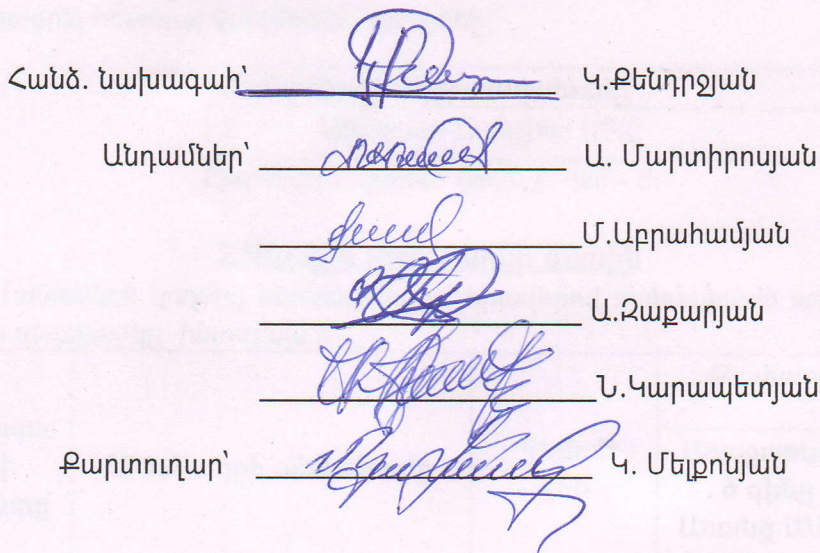 Հանձ. նախագահ՝ Կ.Քենդրջյան
Անդամներ՝ Ա. Մարտիրոսյան
Մ.Աբրահամյան
Ա.Զաքարյան
Ն.Կարապետյան
Քարտուղար՝ Կ. Մելքոնյան